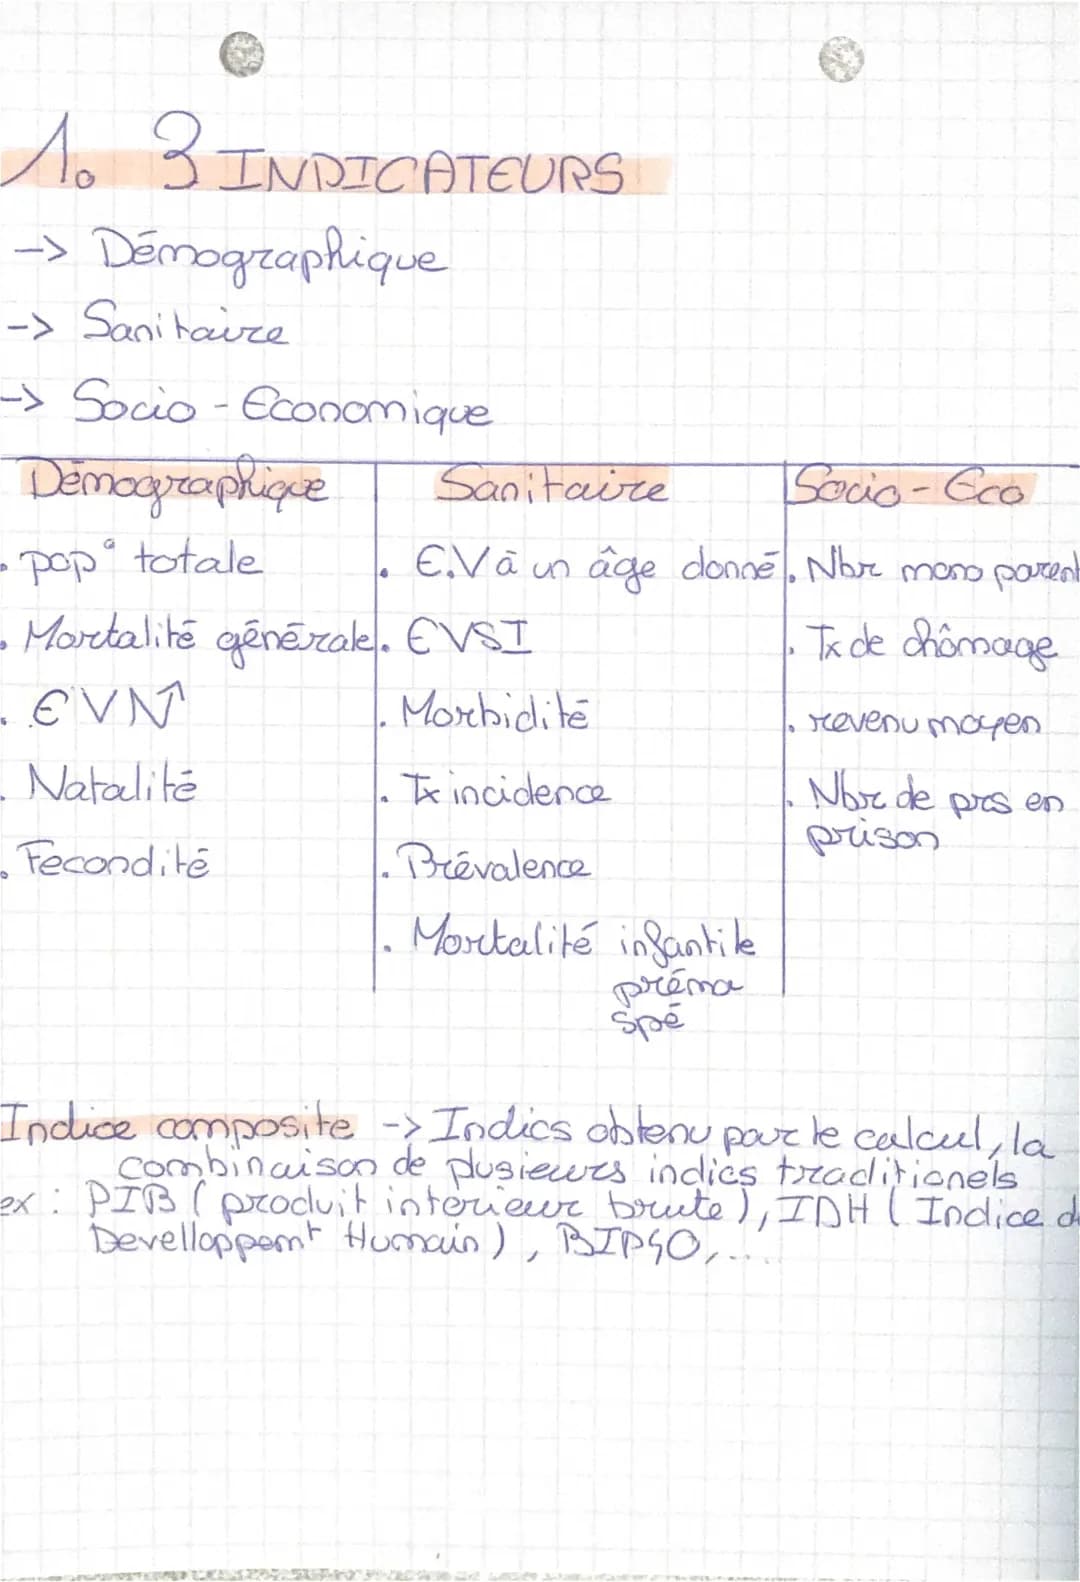 1. 3 INDICATEURS
-> Démographique
-> Sanitaire
-> Socio - Economique
Démographique Sanitaire Socio-Eco
. pop° totale . E.V à un âge donné . Nbr mono parent
. Mortalité générale . EVSI . Tx de chômage
. EVN↑ . Morbidité . revenu moyen
. Natalité . Tx incidence . Nbr de prs en
prison
. Fecondité . Prévalence
. Mortalité infantile
préma
spé
Indice composite -> Indics obtenu par le calcul, la
combinaison de plusieurs indics traditionels
ex : PIB ( produit interieur brute ), IDH ( Indice d
Developpemt Humain ), BIP40, ....